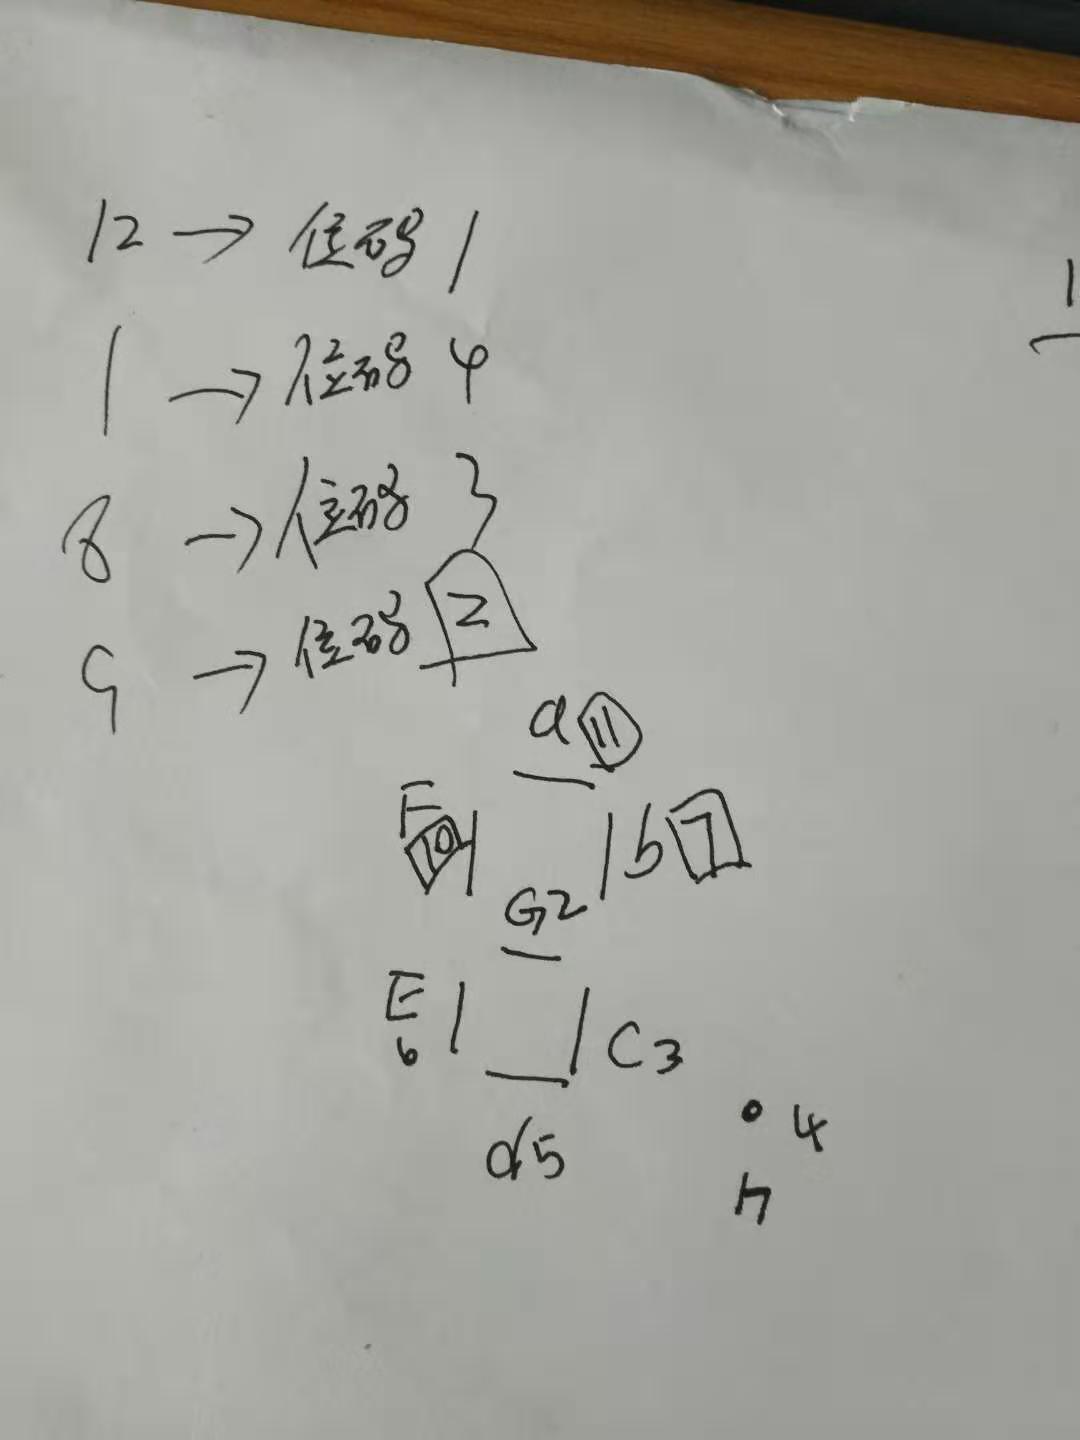 12 → 位码 1
1 → 位码 4
8 → 位码 3
9 → 位码 2
a 11
F 10
b 7
G2
E 6
C3
d5
4
h
1